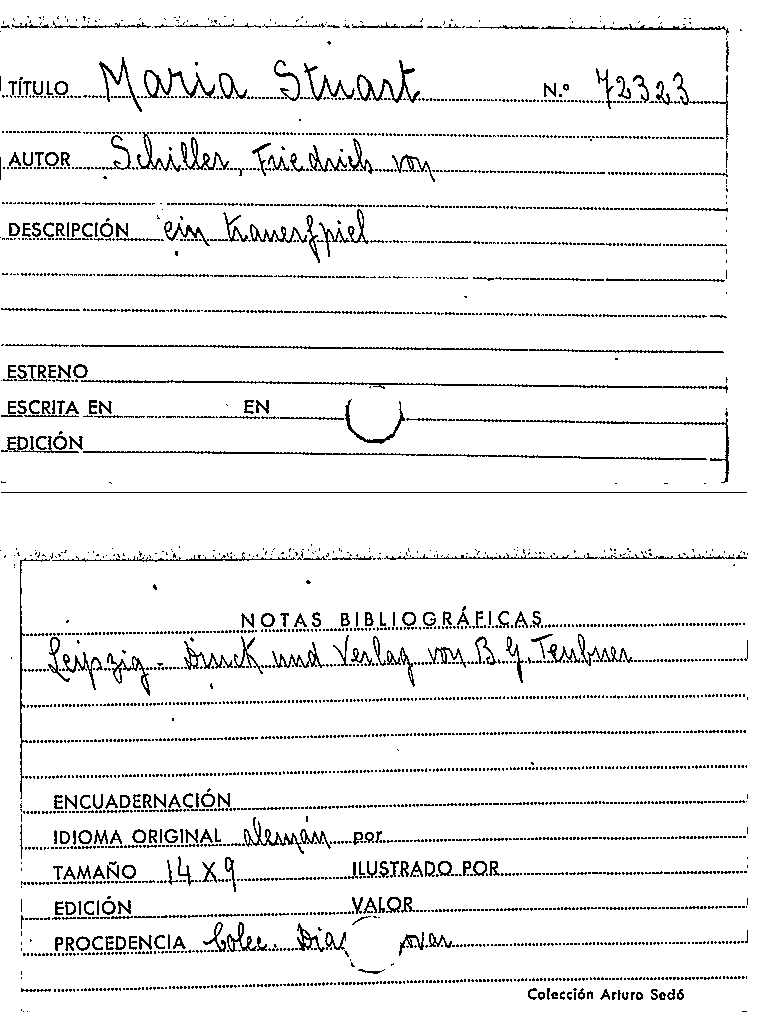 TÍTULO Maria Stuart N.º 72323
AUTOR Schiller, Friedrich von
DESCRIPCIÓN ein trauerfpiel
ESTRENO
ESCRITA EN EN
EDICIÓN
NOTAS BIBLIOGRÁFICAS
Leipzig - Druck und Verlag von B. G. Teubner
ENCUADERNACIÓN
IDIOMA ORIGINAL alemán por
TAMAÑO 14 X 9 ILUSTRADO POR
EDICIÓN VALOR
PROCEDENCIA Colec.
Colección Arturo Sedó